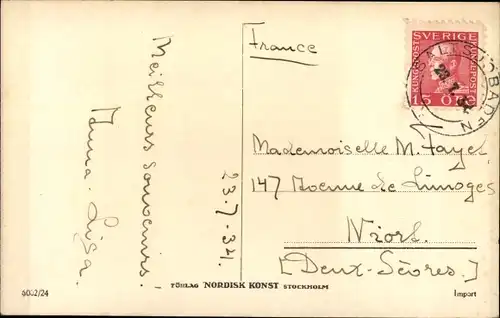 France
SVERIGE
KUNGSPOST
KUNGSPOST
15 ÖRE
23.7.34
Meilleurs souvenirs.
Anna-Lisa.
23.7-34.
Mademoiselle M. Fayet
147 Avenue de Limoges
Niort.
[Deux-Sèvres.]
6002/24
FÖRLAG NORDISK KONST STOCKHOLM
Import